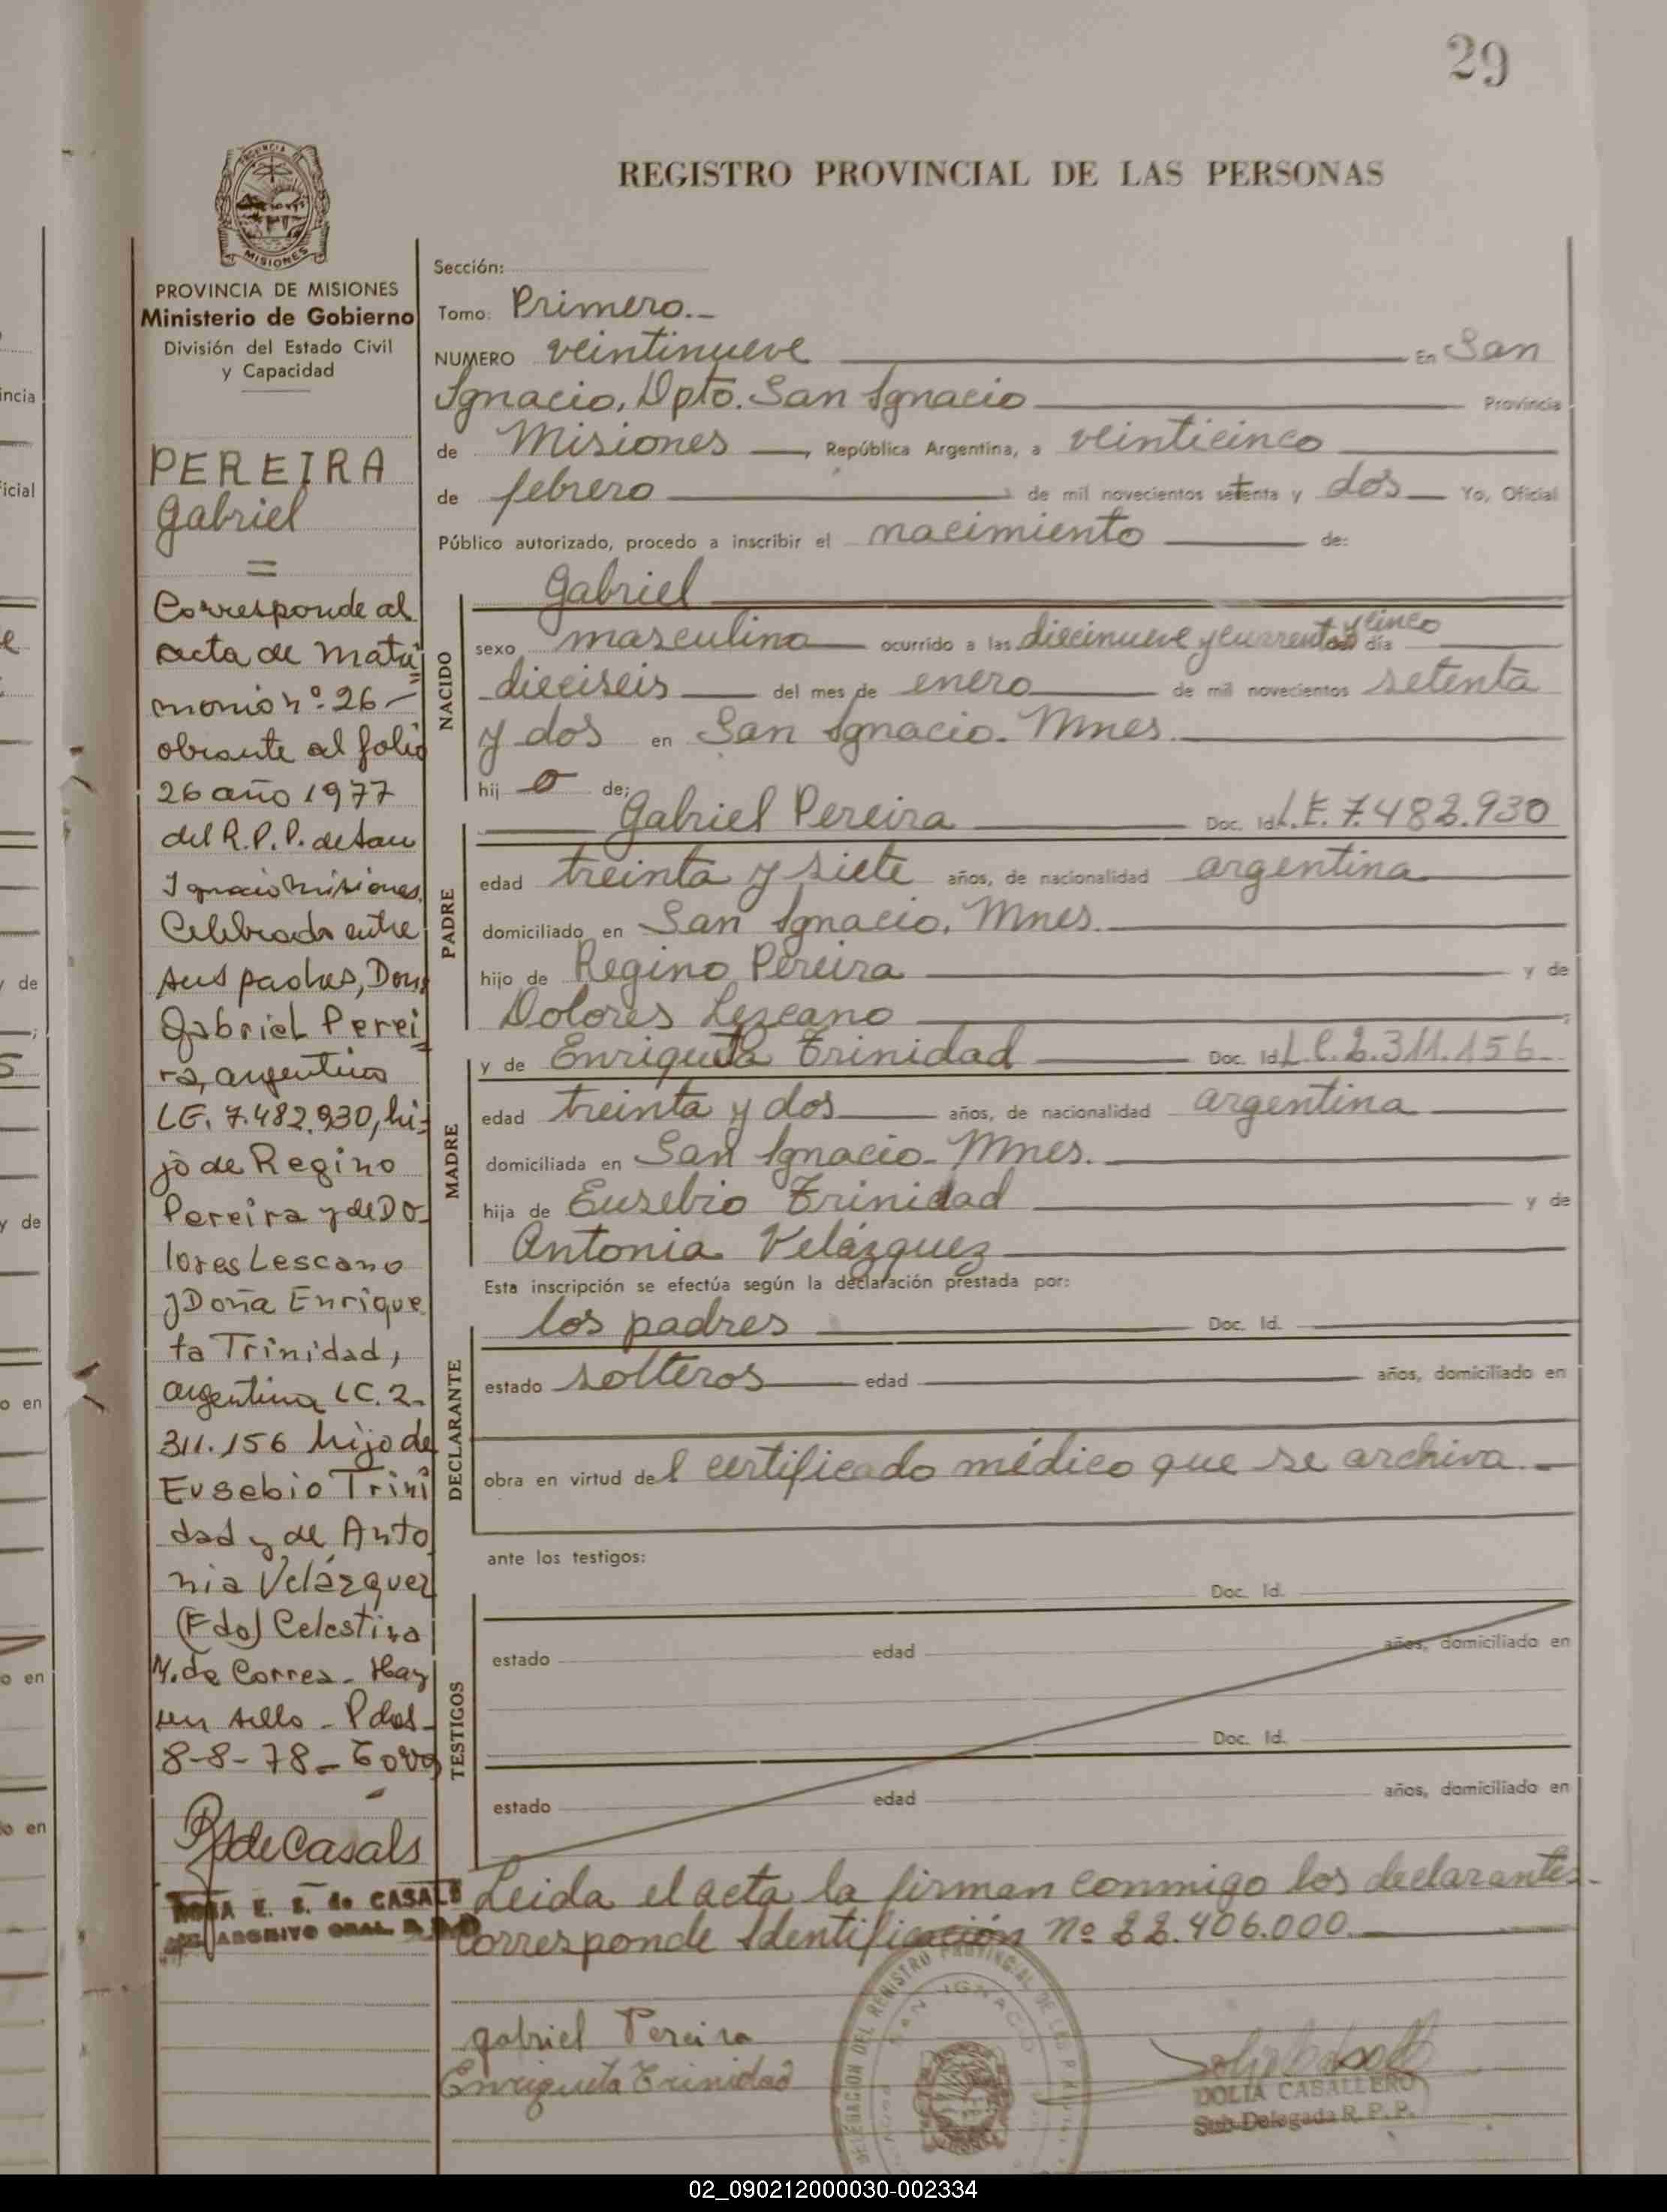 29
REGISTRO PROVINCIAL DE LAS PERSONAS
MISIONES
PROVINCIA DE MISIONES
Ministerio de Gobierno
División del Estado Civil
y Capacidad
PEREIRA
Gabriel
=
Corresponde al
acta de matri
monio nº 26-
obrante al folio
26 año 1977
del R.P.P. de San
Ignacio Misiones,
Celebrado entre
sus padres, Don
Gabriel Perei
ra, argentino
LE. 7.482.930, hi-
jo de Regino
Pereira y de Do-
lores Lescano
y Doña Enrique
ta Trinidad,
argentina LC. 2.
311.156 hijo de
Eusebio Trini
dad y de Anto
nia Velázquez
(Fdo) Celestina
de Correa - Hay
un sello - Pdas-
8-8-78-
de Casals
ROSA E. S. de CASALS
ARCHIVO GRAL.
Sección:
Tomo: Primero.-
NUMERO veintinueve En San
Ignacio, Dpto. San Ignacio Provincia
de Misiones, República Argentina, a veinticinco
de febrero de mil novecientos setenta y dos Yo, Oficial
Público autorizado, procedo a inscribir el nacimiento de:
NACIDO
Gabriel
sexo masculino ocurrido a las diecinueve y cuarenta y cinco día
dieciseis del mes de enero de mil novecientos setenta
y dos en San Ignacio. Mnes.
hij o de;
PADRE
Gabriel Pereira Doc. Id. L.E. 7.482.930
edad treinta y siete años, de nacionalidad argentina
domiciliado en San Ignacio, Mnes.
hijo de Regino Pereira y de
Dolores Lezcano ;
MADRE
y de Enriqueta Trinidad Doc. Id. L.C. 2.311.156
edad treinta y dos años, de nacionalidad argentina
domiciliada en San Ignacio- Mnes.
hija de Eusebio Trinidad y de
Antonia Velázquez
Esta inscripción se efectúa según la declaración prestada por:
DECLARANTE
los padres Doc. Id.
estado solteros edad años, domiciliado en
obra en virtud del certificado médico que se archiva.-
ante los testigos:
TESTIGOS
Doc. Id.
estado edad años, domiciliado en
Doc. Id.
estado edad años, domiciliado en
Leida el acta la firman conmigo los declarantes.-
Corresponde Identificación nº 22.406.000.
gabriel Pereira
Enriqueta Trinidad
DELEGACION DEL REGISTRO PROVINCIAL DE LAS PERSONAS
SAN IGNACIO
DOLIA CABALLERO
Sub-Delegada R. P. P.
02_090212000030-002334